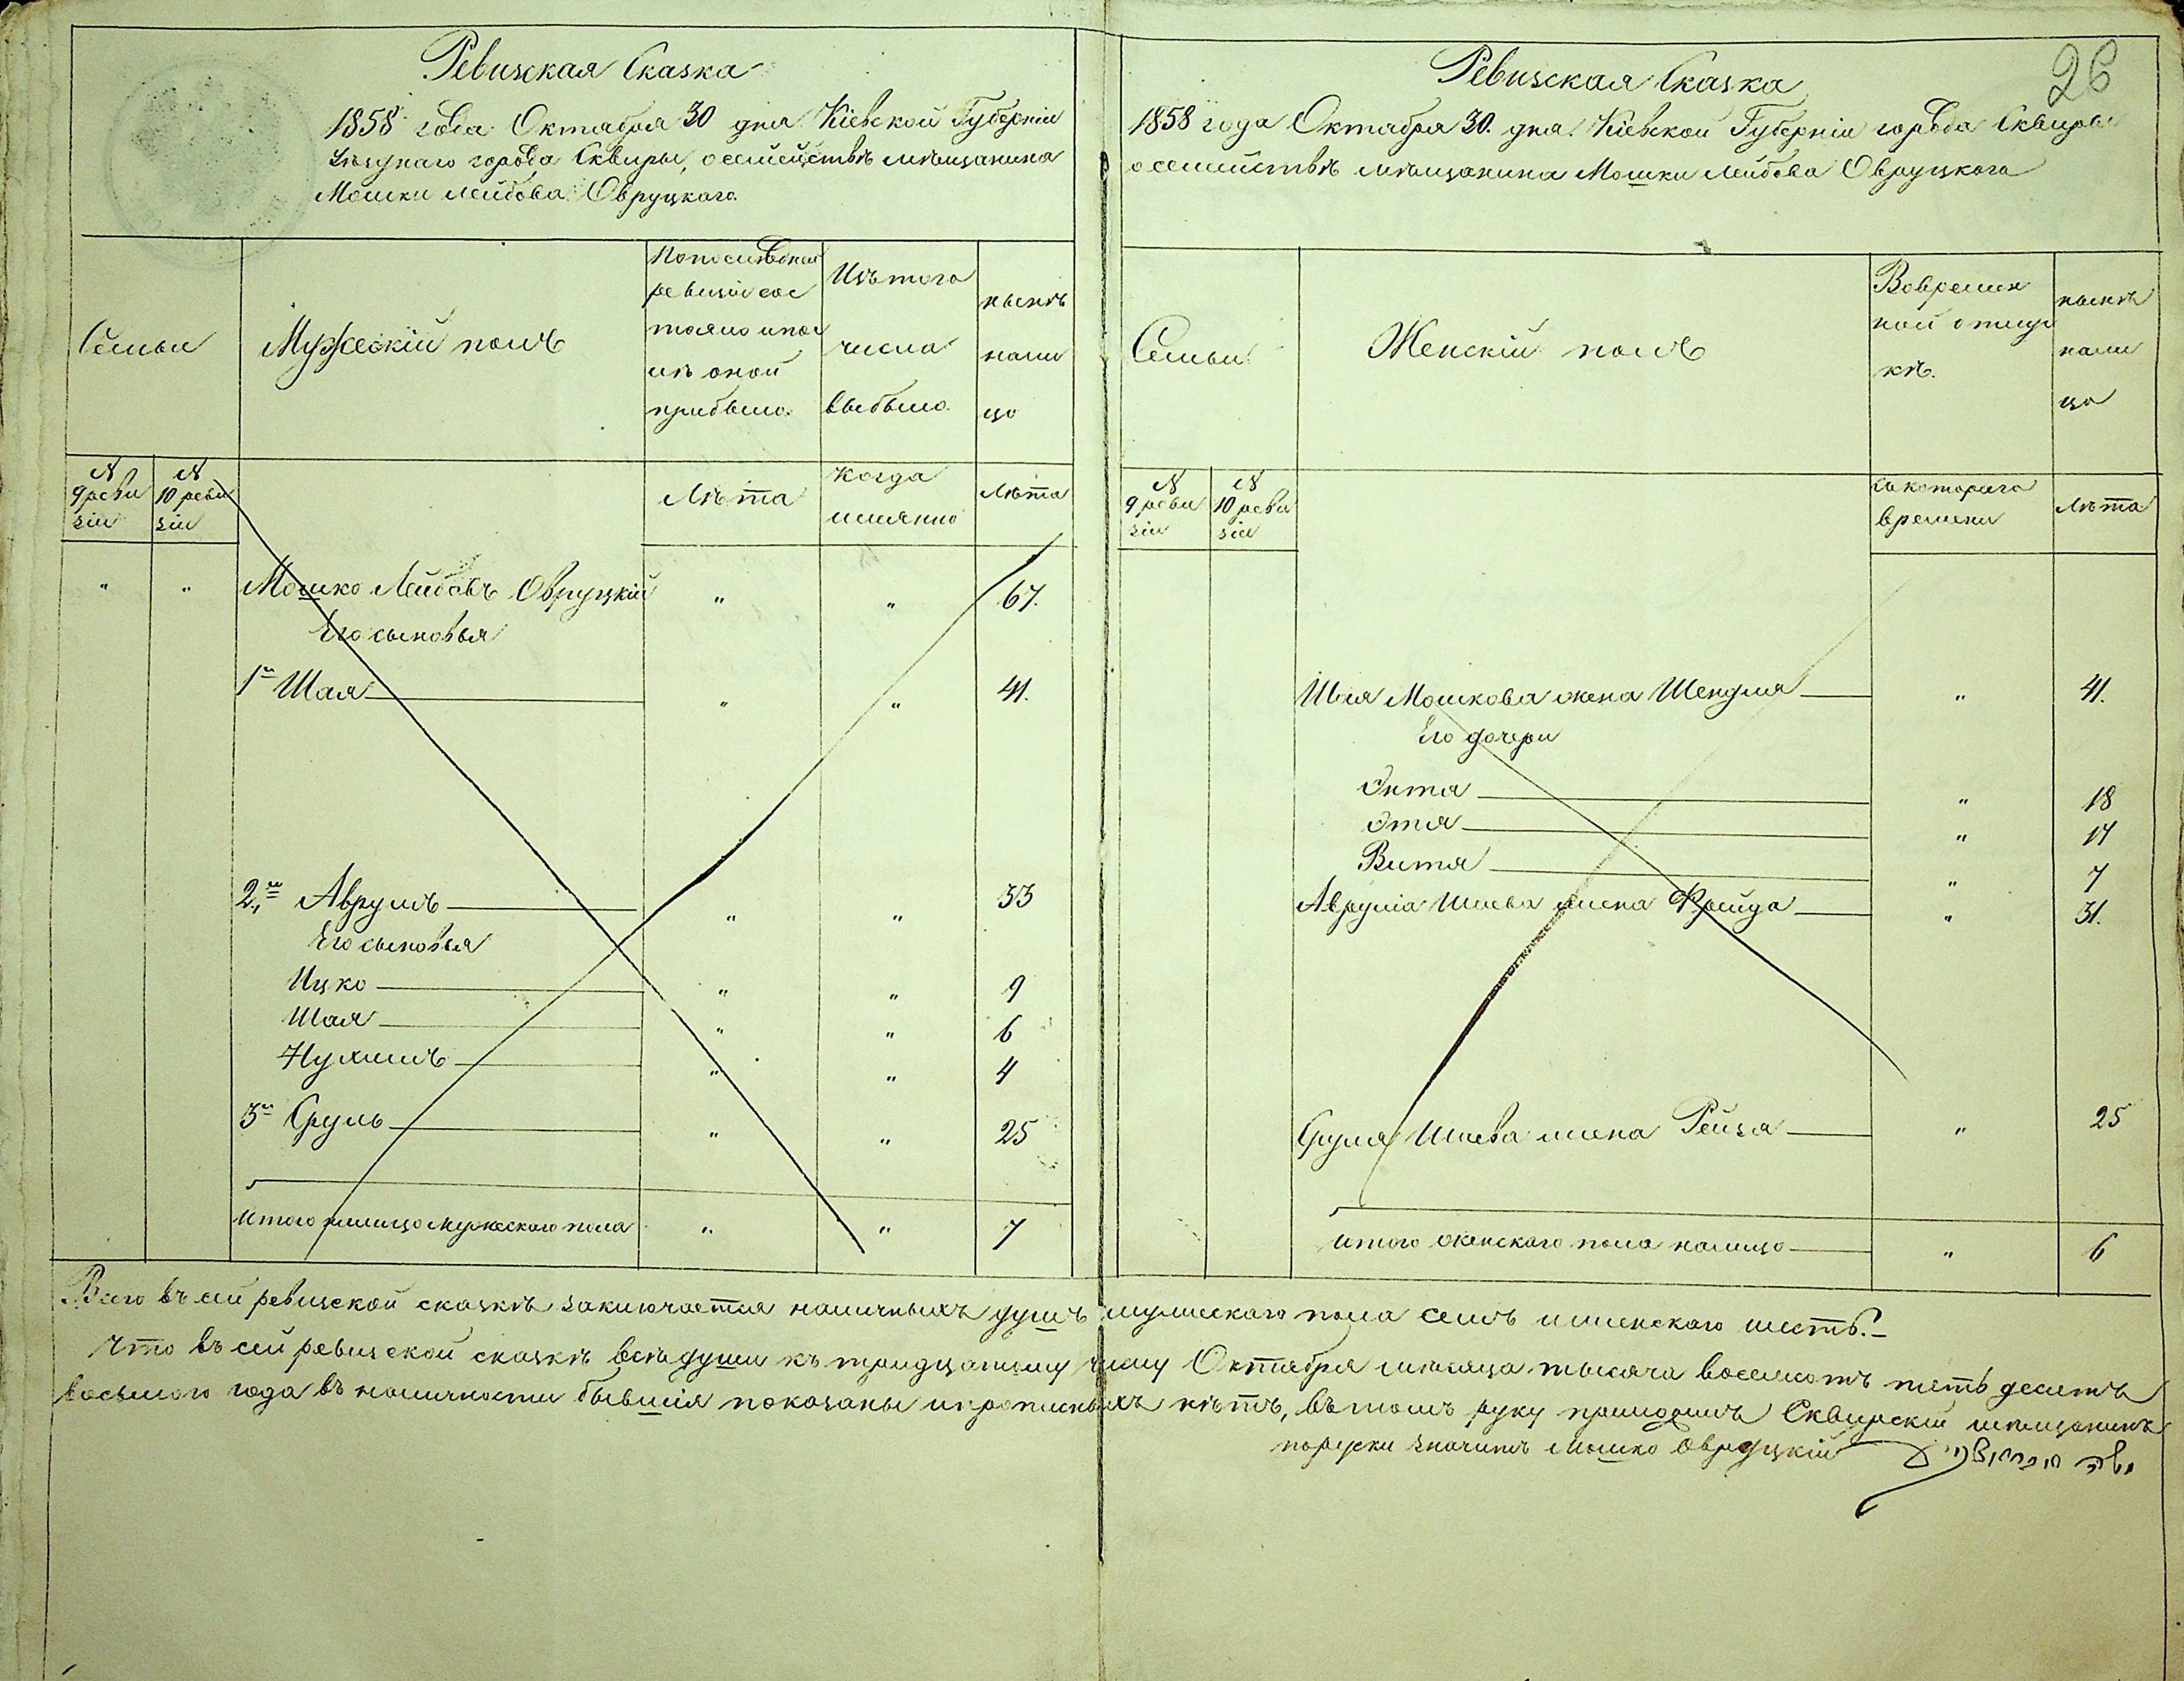 Ревизская Сказка
1858 года Октября 30 дня Кіевской Губерніи
Уѣзднаго города Сквиры, о семействѣ мѣщанина
Мошки Лейбова Овруцкаго.
Семьи
Мужескій полъ
По послѣдней
ревизіи сос
тояло и пос
лѣ оной
прибыло.
Изъ того
числа
выбыло.
нынѣ
нали
цо
№
9 реви
зіи
№
10 реви
зіи
Лѣта
Когда
имянно
Лѣта
" " Мошко Лейбовъ Овруцкій " " 67.
Его сыновья
1й Шая " " 41.
2й Аврумъ " " 33
Его сыновья
Ицко " " 9
Шая " " 6
Нухимъ " " 4
3й Сруль " " 25
Итого налицо мужескаго пола " " 7
26
Ревизская Сказка
1858 года Октября 30. дня. Кіевской Губерніи города Сквиры
о семействѣ мѣщанина Мошки Лейбова Овруцкаго
Семьи
Женскій полъ
Во времен
ной отлуч
кѣ.
нынѣ
нали
цо
№
9 реви
зіи
№
10 реви
зіи
Съ котораго
времени
Лѣта
Шая Мошкова жена Шендля " 41.
Его дочери
Энтя " 18
Этя " 14
Витя " 7
Аврума Шаева жена Фрейда " 31.
Сруля Шаева жена Рейзя " 25
Итого женскаго пола налицо " 6
Всего въ сей ревизской сказкѣ заключается наличныхъ душъ мужескаго пола семь и женскаго шесть.
Что въ сей ревизской сказкѣ всѣ души къ тридцатому числу Октября мѣсяца тысяча восемсотъ пять десятъ
восьмого года въ наличности бывшія показаны и прописныхъ нѣтъ, въ томъ руку приложилъ Сквирскій мѣщанинъ
поруски значитъ Мошко Овруцкій